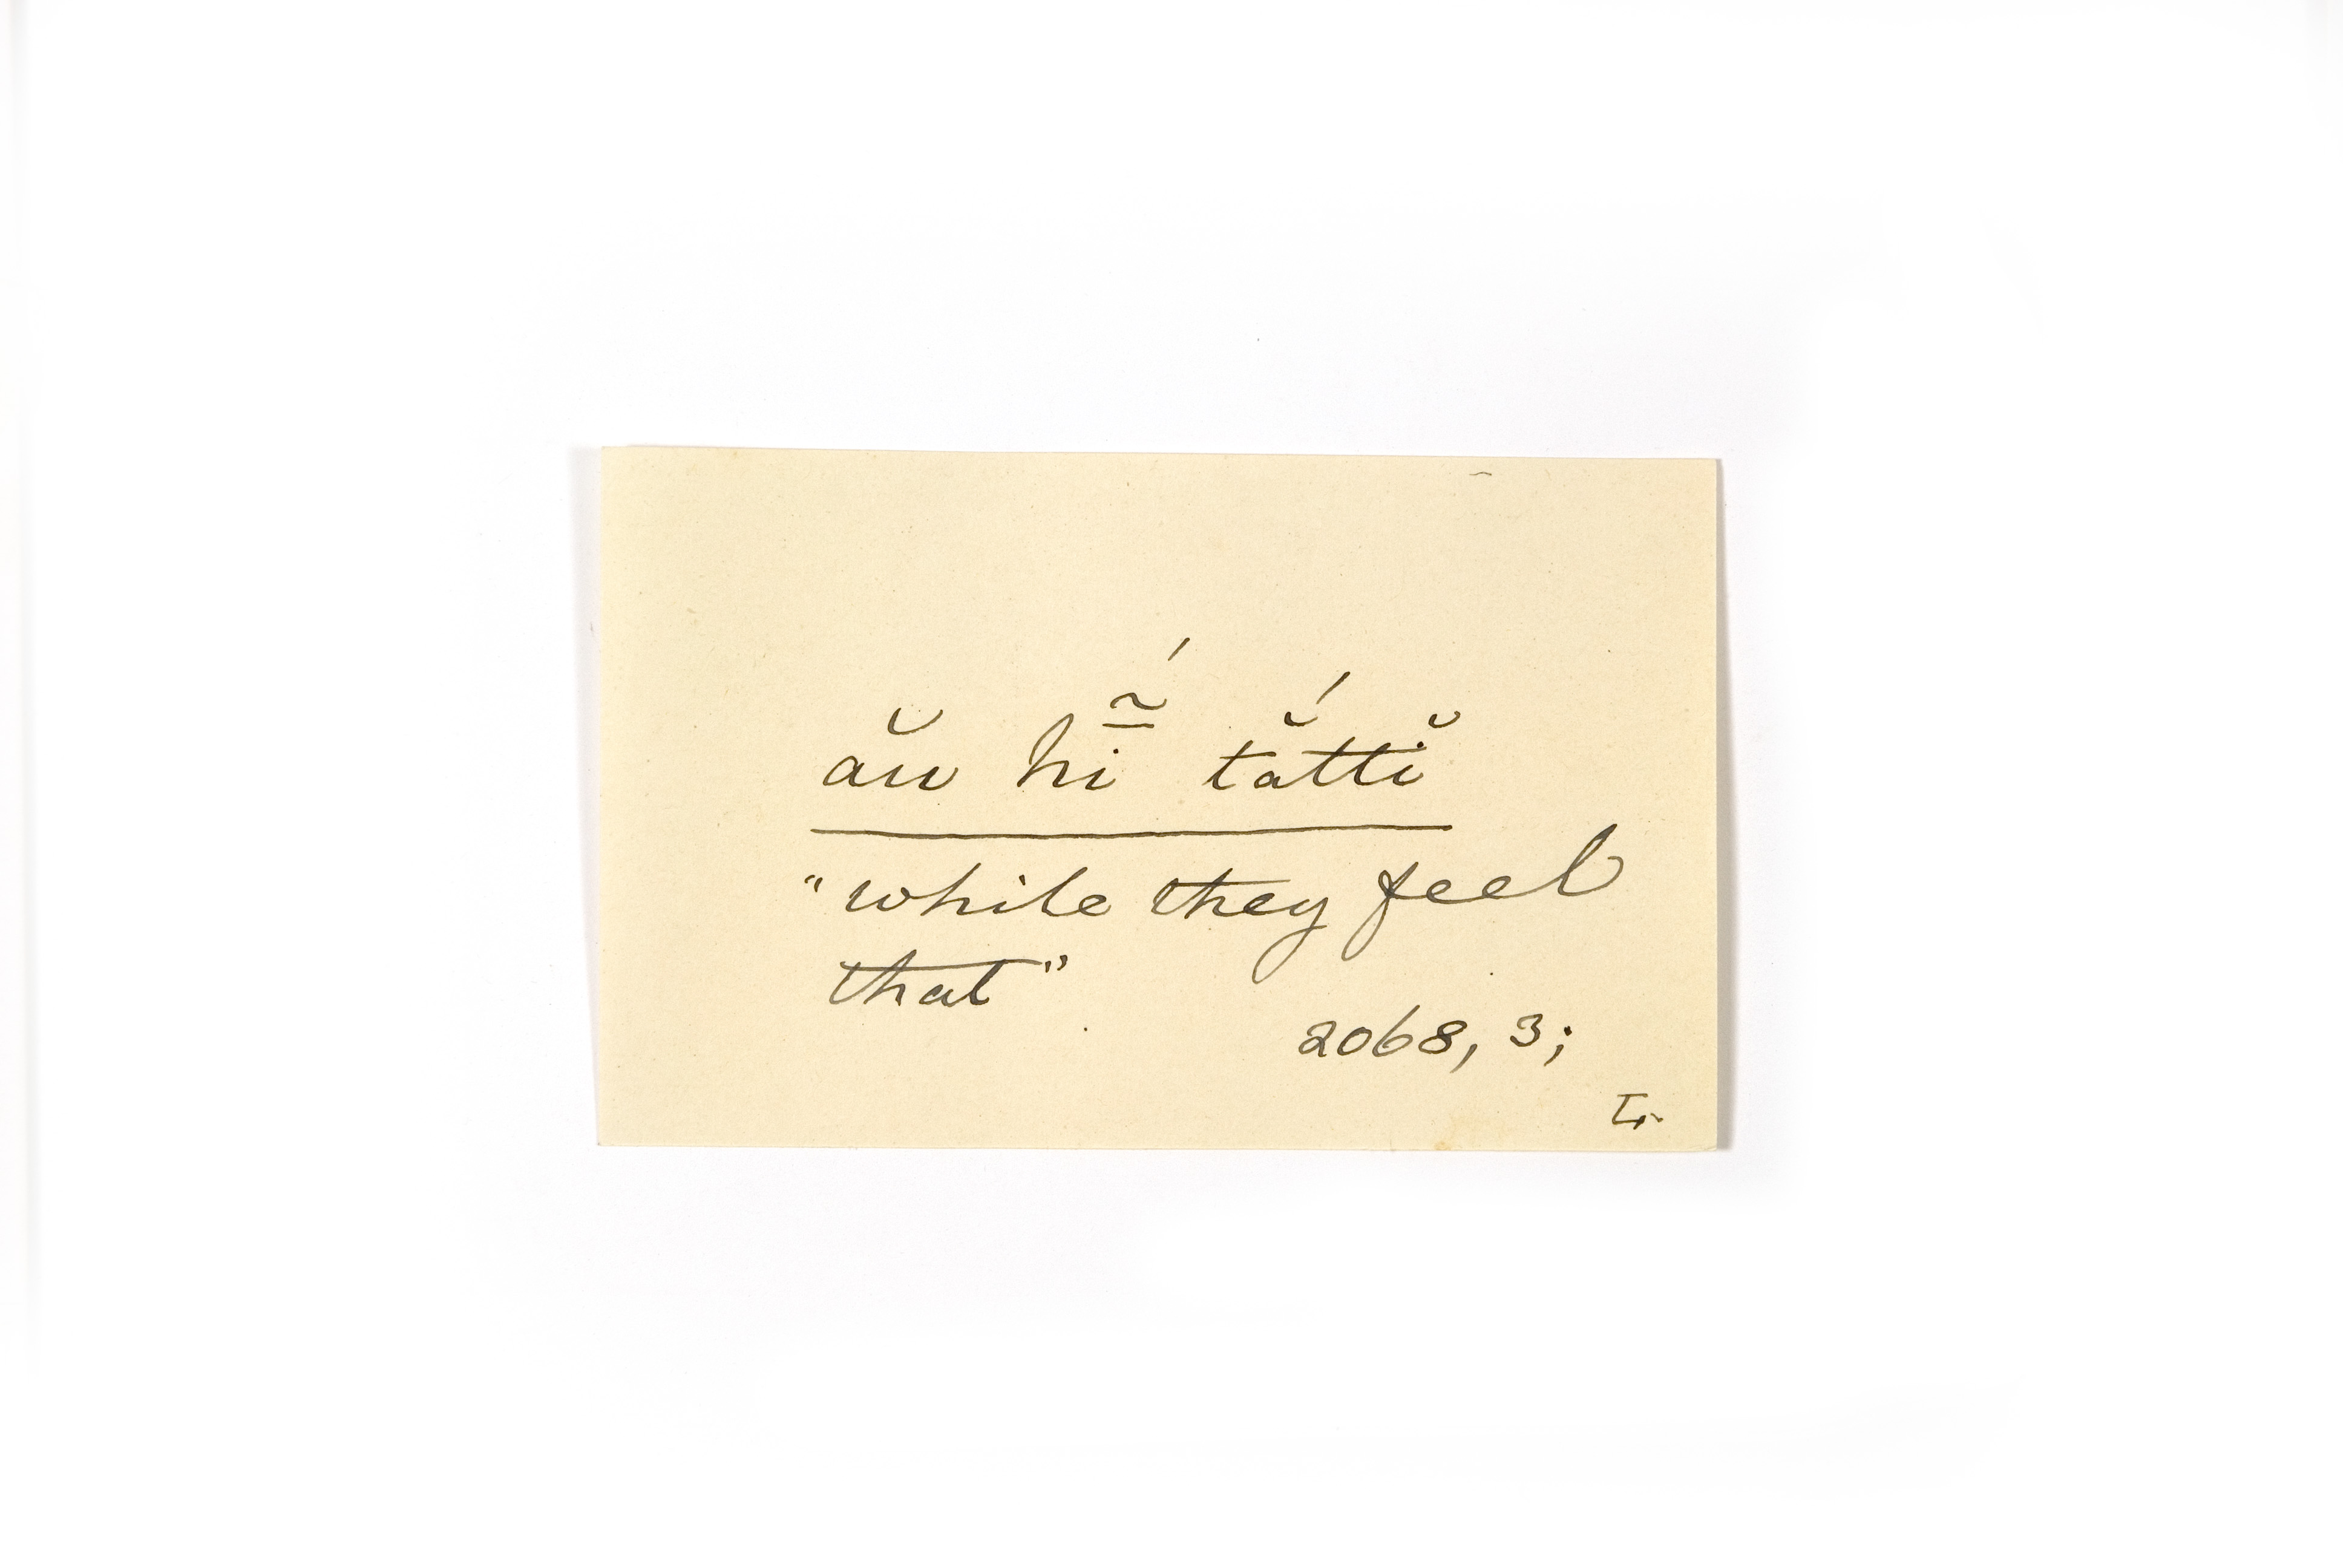 ăw hī̃́ tắttĭ
"while they feel
that"
2068, 3;